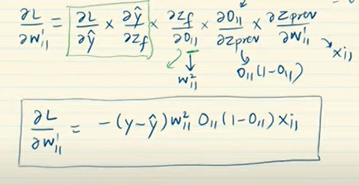 ∂L/∂w¹₁₁ = ∂L/∂ŷ × ∂ŷ/∂z_f × ∂z_f/∂O₁₁ × ∂O₁₁/∂z_prev × ∂z_prev/∂w¹₁₁
w²₁₁ O₁₁(1-O₁₁) x_i₁
∂L/∂w¹₁₁ = -(y-ŷ) w²₁₁ O₁₁(1-O₁₁) x_i₁